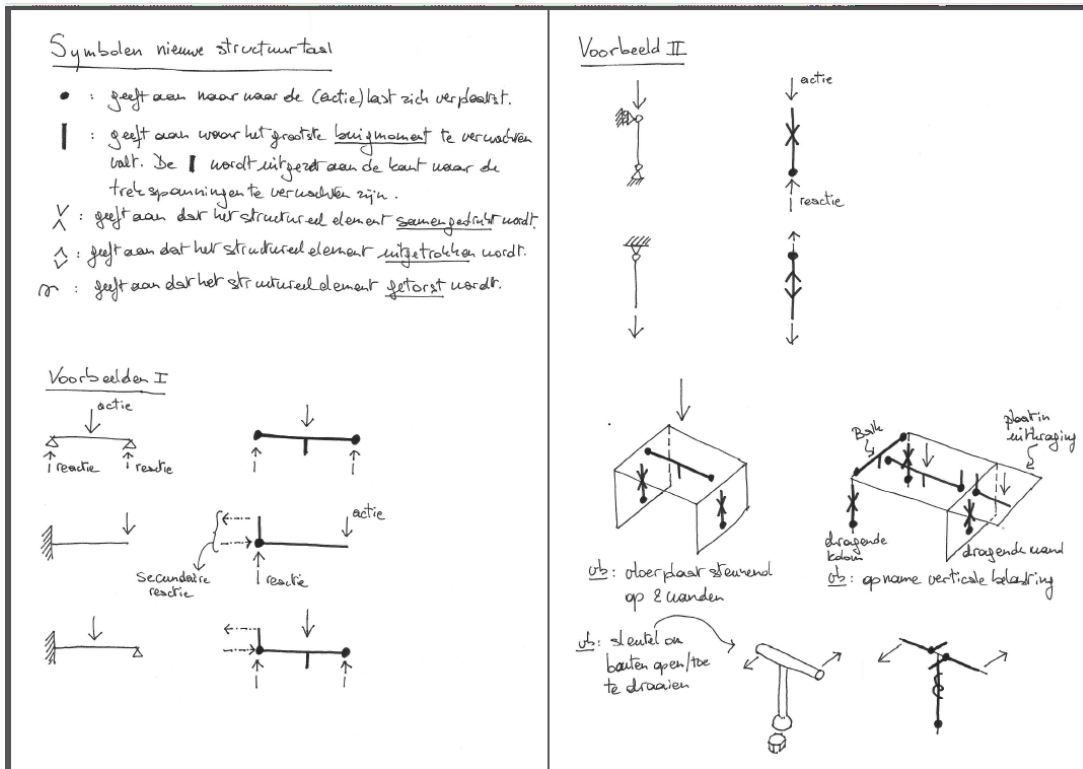 Symbolen nieuwe structuurtaal
• : geeft aan naar waar de (actie) last zich verplaatst.
| : geeft aan waar het grootste buigmoment te verwachten
valt. De | wordt uitgezet aan de kant waar de
trekspanningen te verwachten zijn.
: geeft aan dat het structureel element samengedrukt wordt.
: geeft aan dat het structureel element uitgetrokken wordt.
: geeft aan dat het structureel element getorst wordt.
Voorbeelden I
actie
reactie
reactie
actie
secundaire
reactie
reactie
Voorbeeld II
actie
reactie
Balk
plaat in
uitkraging
dragende
kolom
dragende wand
vb: vloerplaat steunend
op 2 wanden
vb: opname verticale belasting
vb: sleutel om
bouten open/toe
te draaien